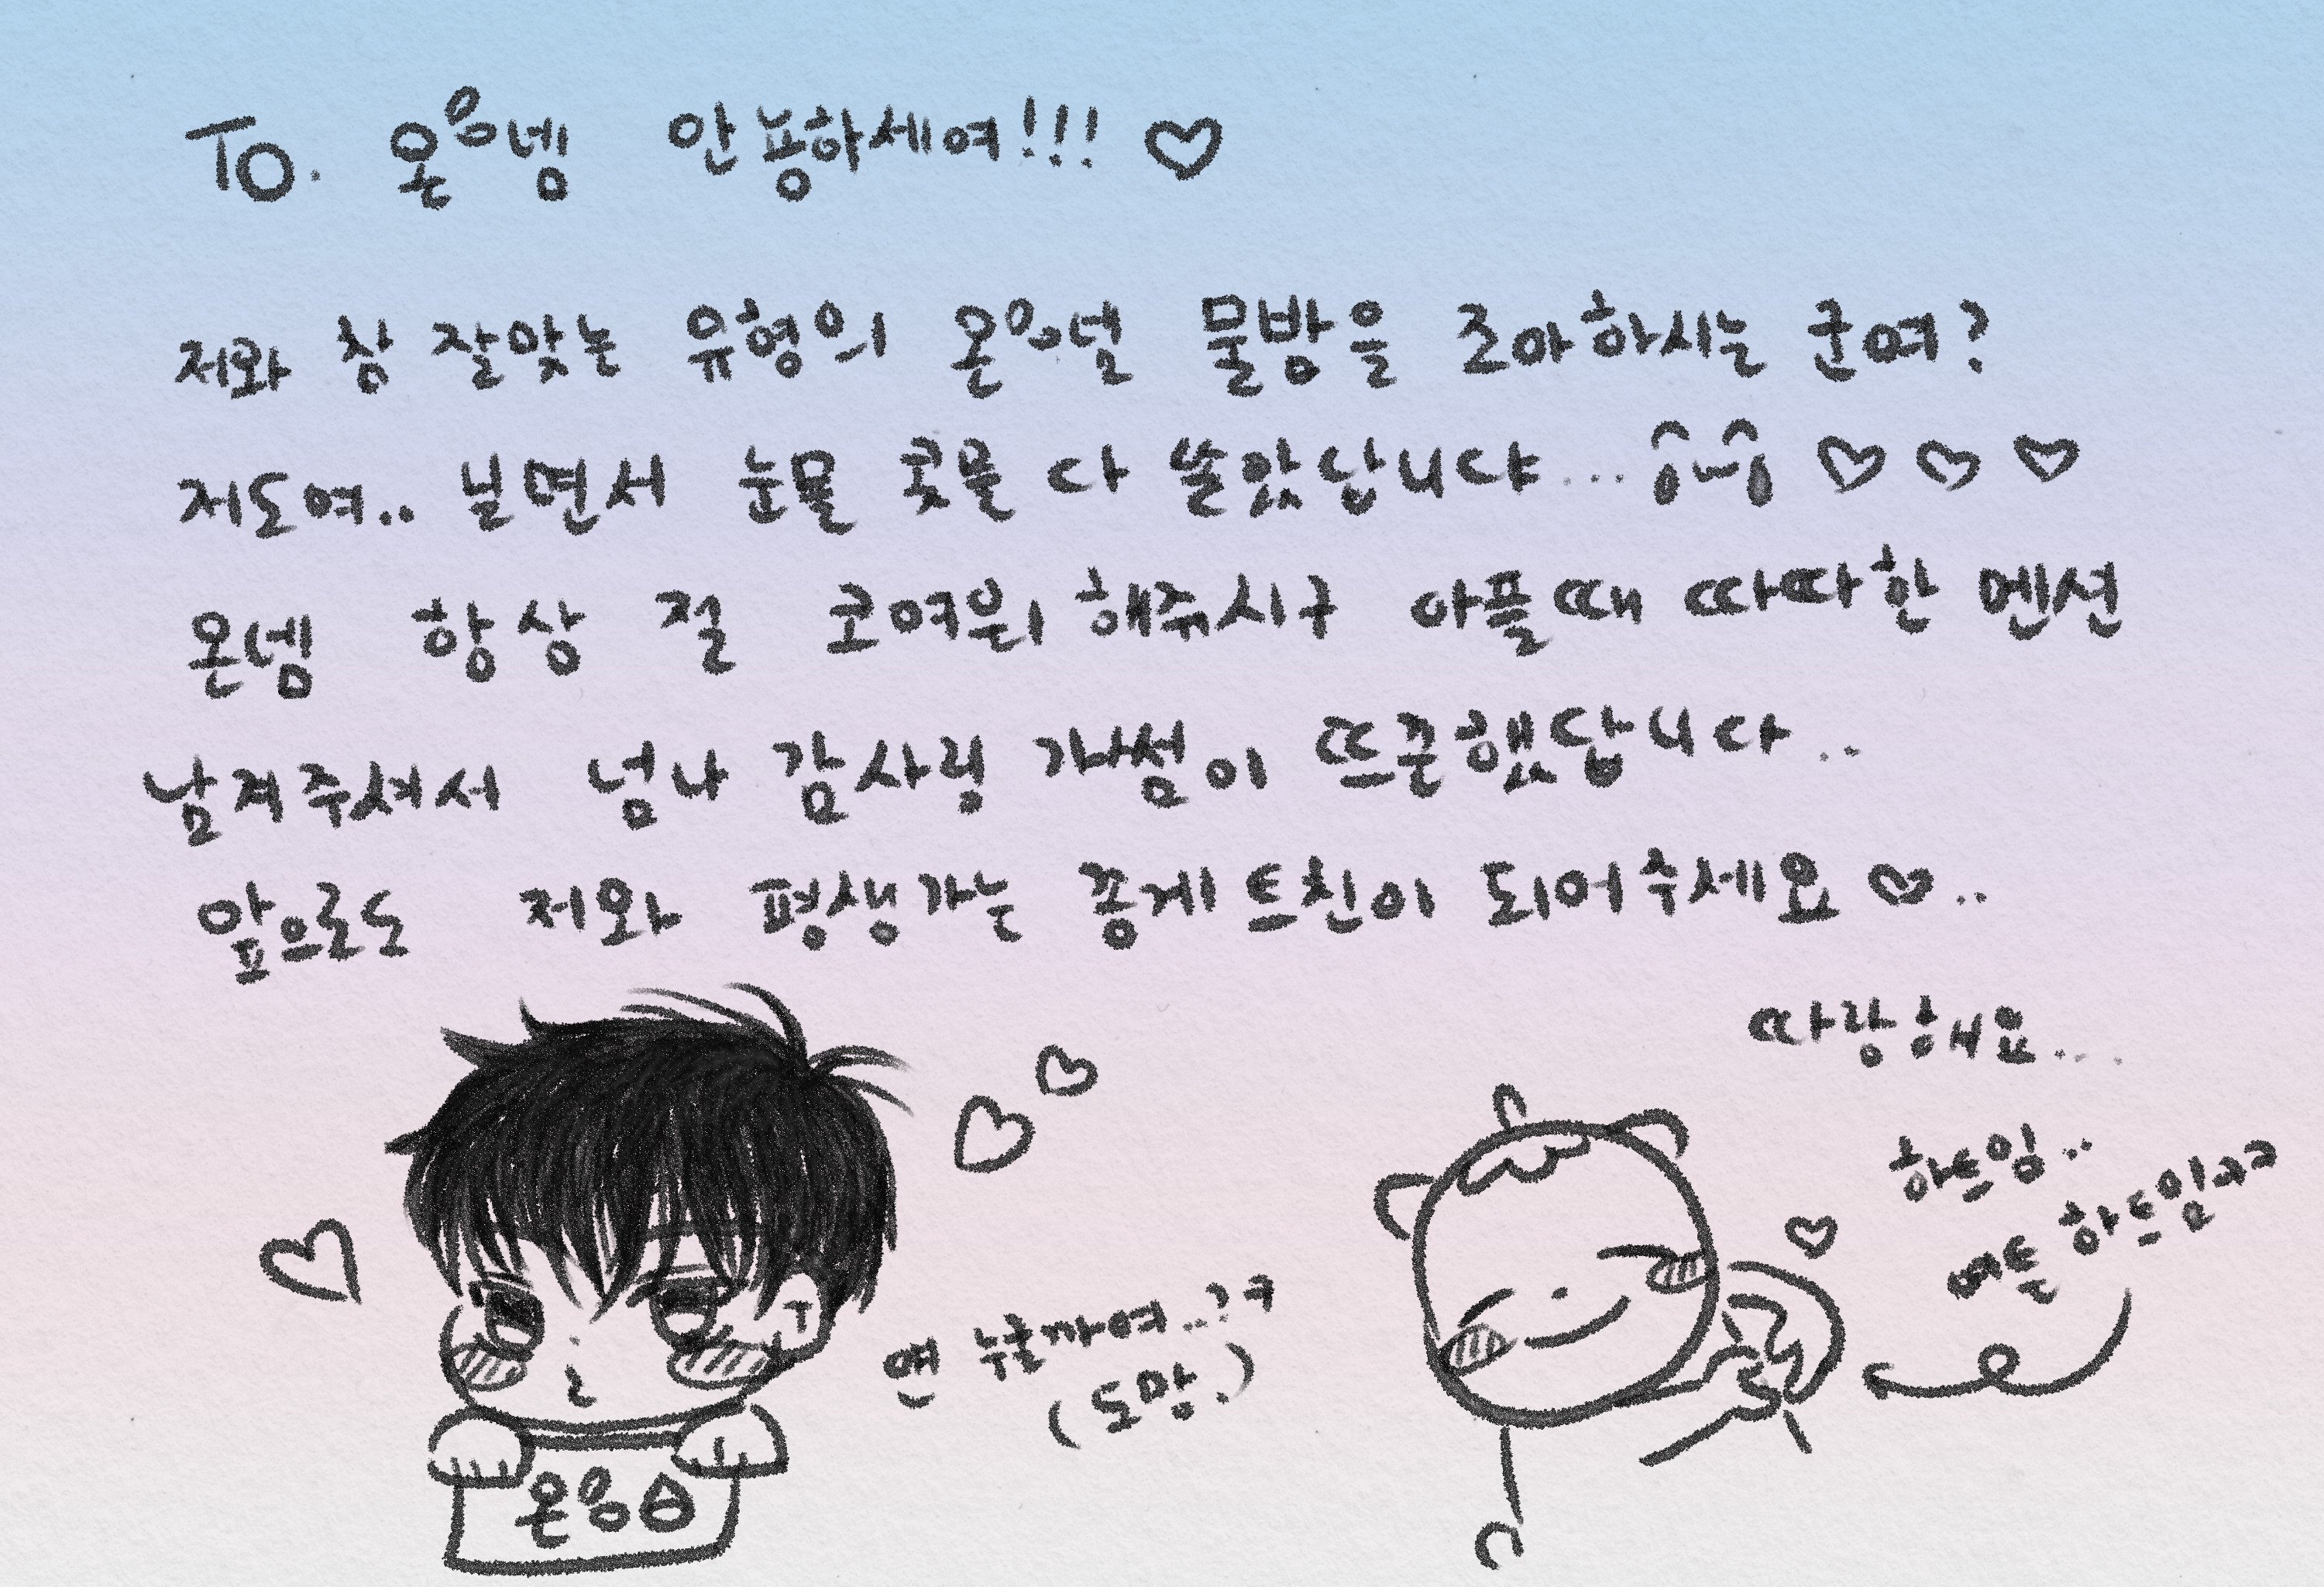 To. 온응넴 안뇽하세여!!! ♡
저와 참 잘맞는 유형의 온응널 물방을 조아하시는 군여?
저도여.. 보면서 눈물 콧물 다 쏟았답니댜... ♡ ♡ ♡
온넴 항상 절 코여워 해주시구 아플때 따따한 멘션
남겨주셔서 넘나 감사링 가섬이 뜨끈했답니다..
앞으로도 저와 평생가는 종게 트친이 되어주세요 ♡..
따랑해요...
하트임..
여튼 하트임ㅋㅋ
연 누굴까여...?ㅋ
(도망.)
온응